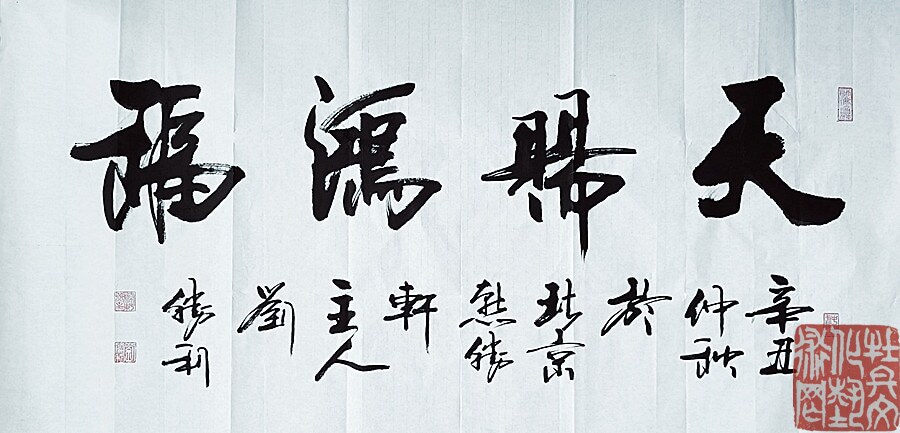 天賜鴻福
辛丑仲秋於北京勝軒主人劉勝利